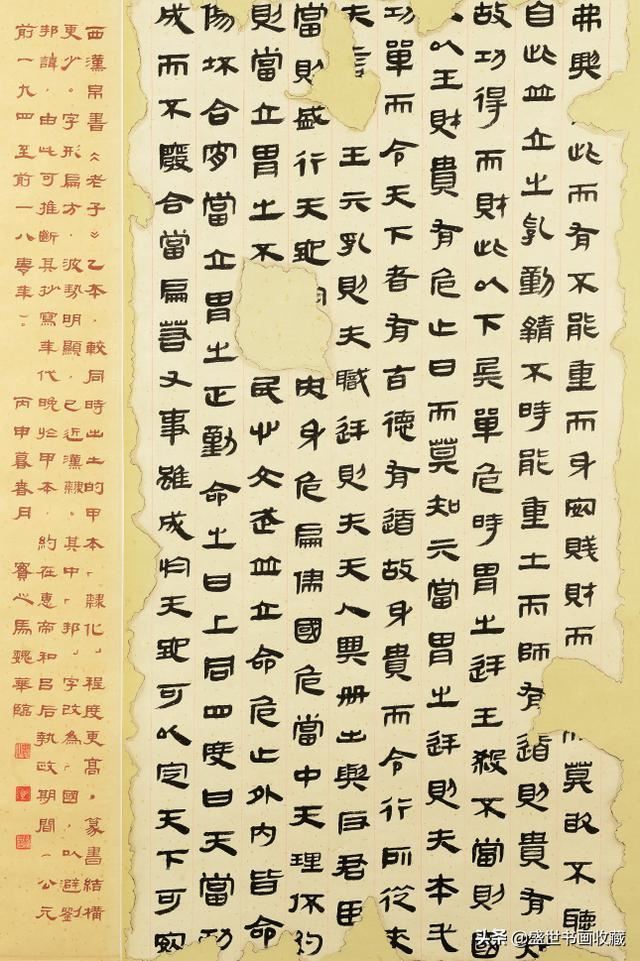 弗興此而有不能重而身安賤財而莫敢不聽
自此並立之乳動静不時能重土而師有道則貴有夫
故功得而財此以下異單危時胃之逆王殺不當則國
以王財貴有危之曰而莫知元當胃之逆則夫本
功單而今天下者有古德有道故身貴而令行所從夫
夫王元乳則夫職逆則夫天人異冊之與君臣
當則盛行天地內身危為國危當中天理不約
則當立胃之不民之文武並立命危之外內皆命
傷坏合安當立胃之正動命之曰上同四度曰天當功
成而不廢合當為又事雖成約天地可以定天下可安
西漢帛書《老子》乙本，較同時出土的甲本「隸化」程度更高，篆書結構
更少。字形扁方，波勢明顯，已近漢隸。其中「邦」字改為「國」，以避劉
邦諱，由此可推斷其抄寫年代晚於甲本，約在惠帝和呂后執政期間（公元
前一九四至前一八零年）。 丙申暮春月 寶心馬巍華臨
头条 @盛世书画收藏